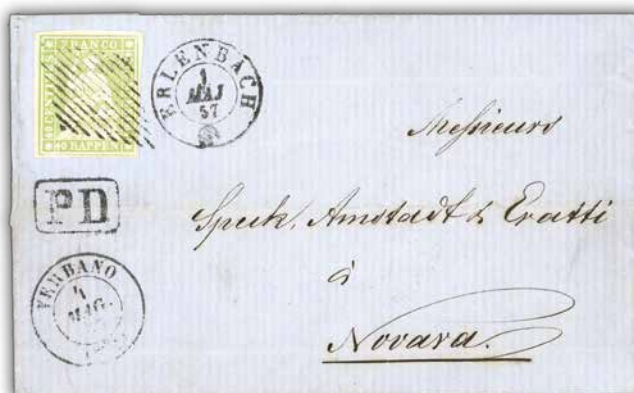 FRANCO
CENTIMES
40 RAPPEN
ERLENBACH
1
MAI
57
PD
VERBANO
4
MAG.
Messieurs
Speck, Amstadt & Eratti
à
Novara.